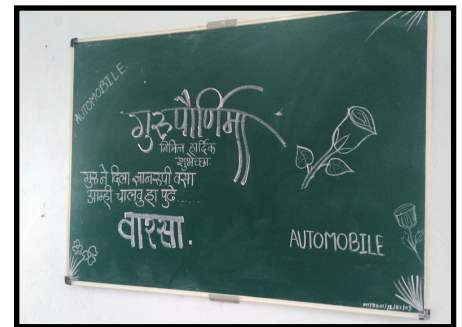 AUTOMOBILE.
गुरुपौर्णिमा
निमित्त हार्दिक
शुभेच्छा
गुरु ने दिला ज्ञानरूपी वसा
आम्ही चालवु हा पुढे ......
वारसा.
AUTOMOBILE